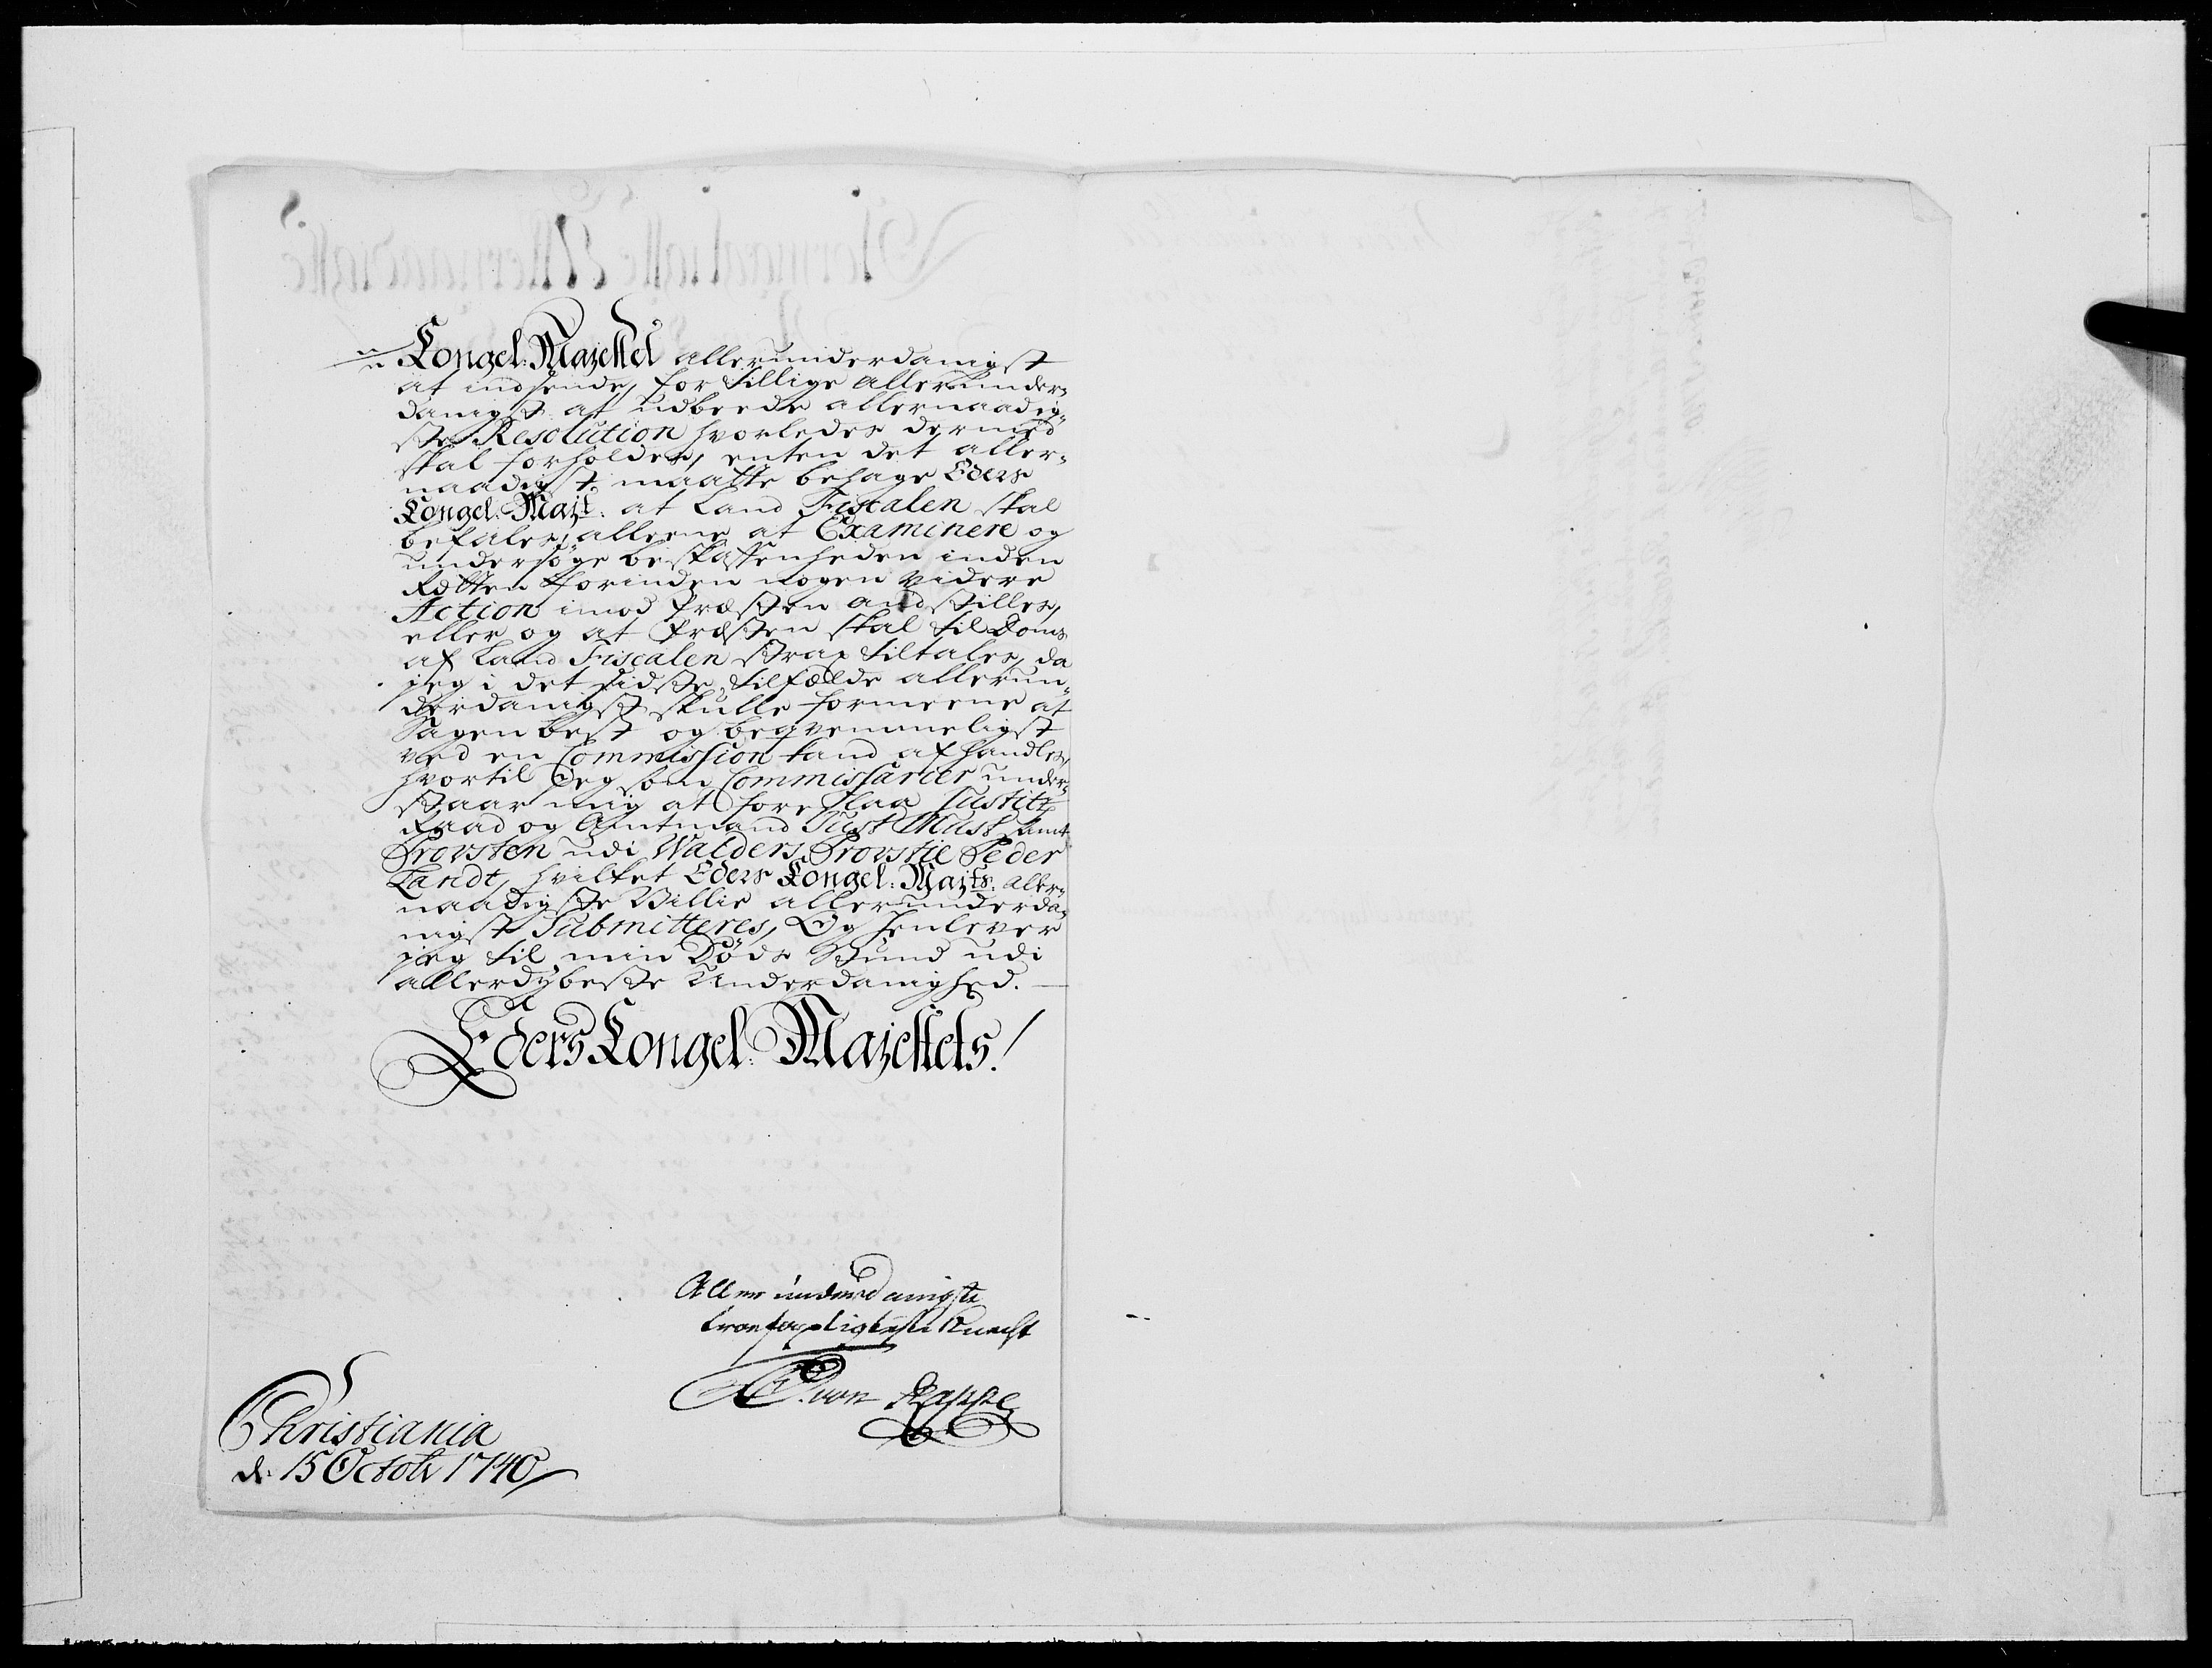 Kongel: Mayestet allerunderdanigst
at indsende, for tillige allerunder-
danigst at udbeede allernaadig-
ste Resolution hvorledes dermed
skal forholdes, enten det aller-
naadigst maatte behage Eders
Kongel: Mayt: at Land Fiscalen skal
befales, alleene at Examinere og
undersøge beskaffenheden inden
Rætten forinden nogen videre
Action imod Præsten andstilles,
eller og at Præsten skal til Doms
af Land Fiscalen strax tiltales, da
jeg i det sidste tilfælde allerun-
derdanigst skulle formeene at
Sagen best og beqvemmeligst
ved en Commission kand afhandles,
hvortil Jeg som Commissarier under-
staar mig at foreslaa Justitz
Raad og Amtmand Just Must samt
Provsten udi Walders Provstie Peder
Landt, hvilket Eders Kongel: Mayts: aller-
naadigste Villie allerunderda-
nigst Submitteres, Og henlever
jeg til min Døds Stund udi
allerdybeste Underdanighed.
Eders Kongel: Mayestets!
Allerunderdanigste
troepligtigste Knecht
von Rappe
Christiania
d: 15 Octobr 1740